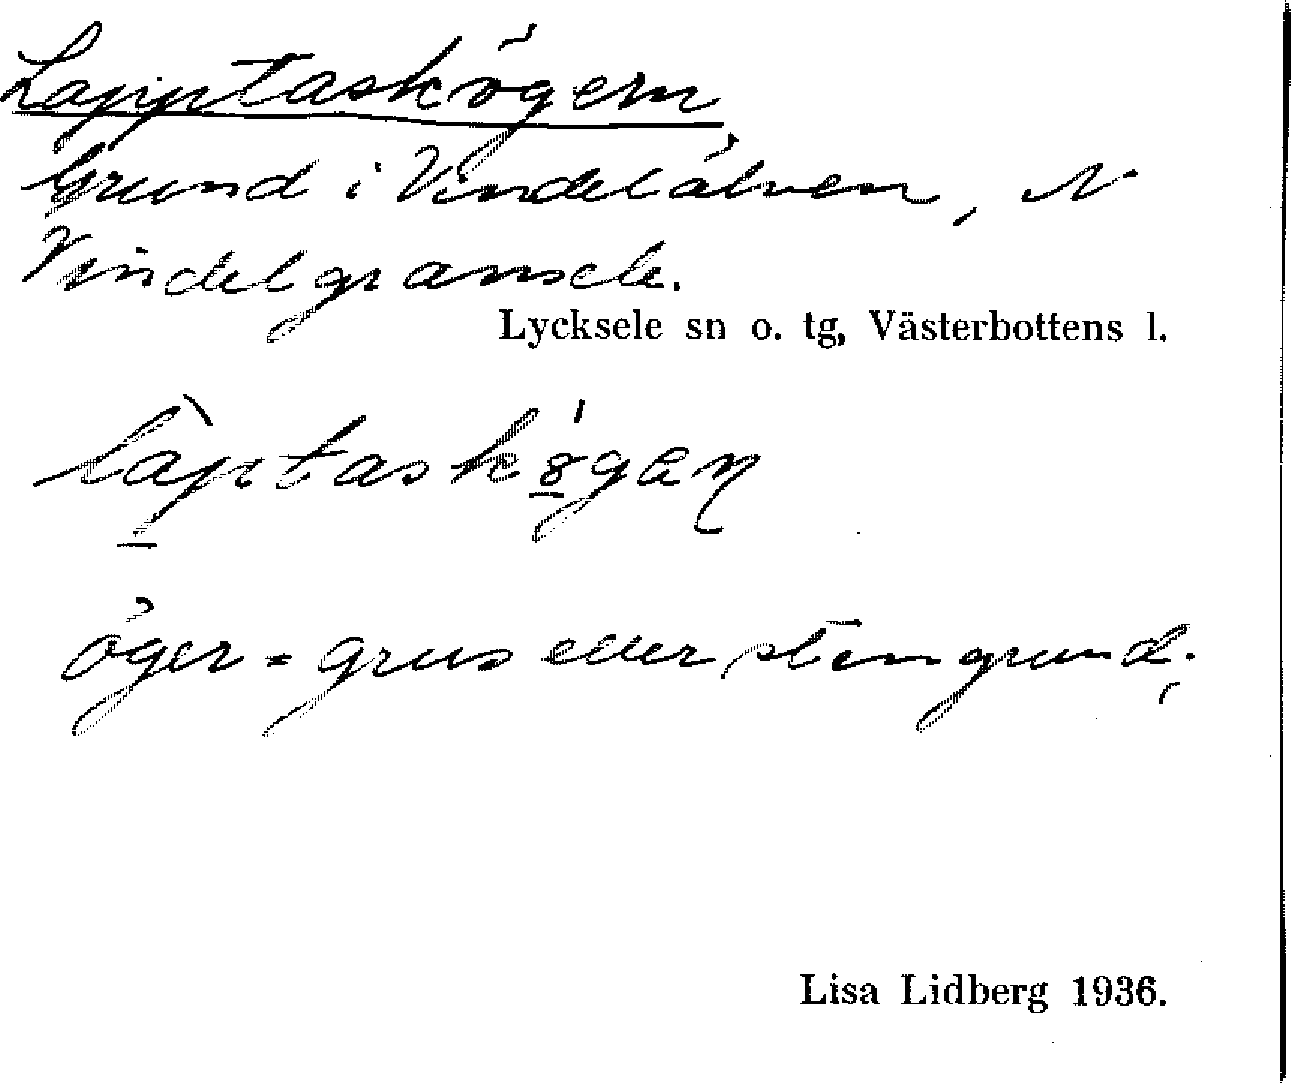 Lapptaskögern
Grund i Vindelälven, N
Vindelgransele.
Lycksele sn o. tg, Västerbottens l.
öger = grus eller stengrund.
Lisa Lidberg 1936.